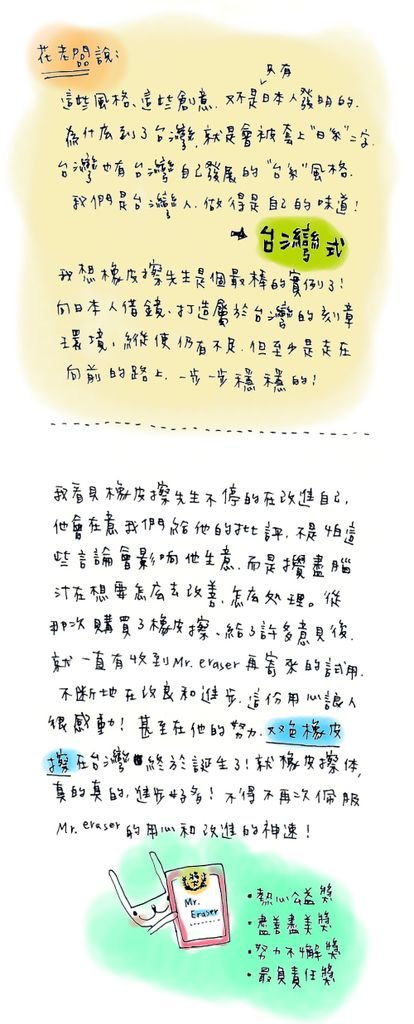 花老闆說：
只有
這些風格、這些創意，又不是日本人發明的，
為什麼到了台灣，就是會被套上"日系"二字，
台灣也有台灣自己發展的"台系"風格，
我們是台灣人，做得是自己的味道！
→ 台灣式
我想橡皮擦先生是個最棒的實例了！
向日本人借鏡、打造屬於台灣的刻章
環境，縱使仍有不足，但至少是走在
向前的路上，一步一步穩穩的！
我看見橡皮擦先生不停的在改進自己，
他會在意我們給他的批評，不是怕這
些言論會影响他生意，而是攪盡腦
汁在想要怎么去改善、怎么处理。從
那次購買了橡皮擦、給了許多意見後，
就一直有收到Mr. eraser再寄來的試用，
不斷地在改良和進步，這份用心讓人
很感動！甚至在他的努力，双色橡皮
擦在台灣終於誕生了！就橡皮擦体，
真的真的，進步好多！不得不再次佩服
Mr. eraser的用心和改進的神速！
獎
Mr.
Eraser
·熱心公益獎
·盡善盡美獎
·努力不懈獎
·最負責任獎